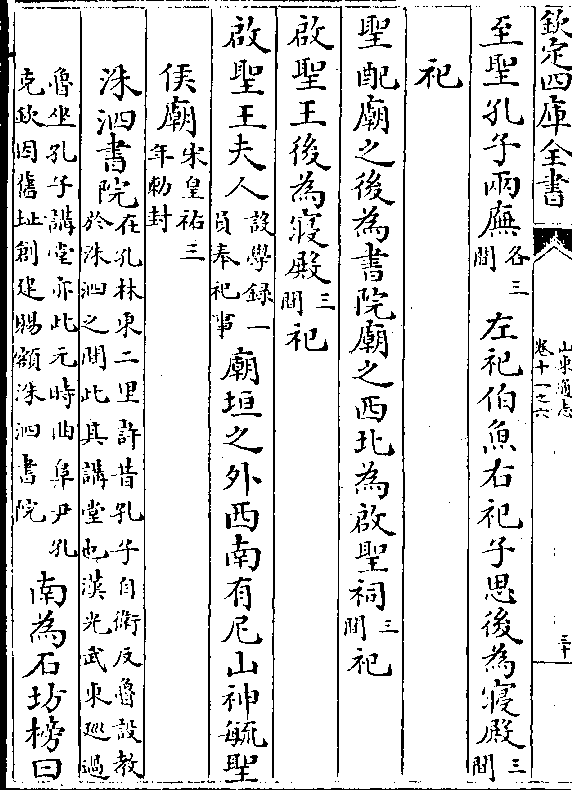 欽定四庫全書
山東通志
卷十一之六
三十
至聖孔子兩廡各三間左祀伯魚右祀子思後為寢殿三間
祀
聖配廟之後為書院廟之西北為啟聖祠三間祀
啟聖王後為寢殿三間祀
啟聖王夫人設學録一員奉祀事廟垣之外西南有尼山神毓聖
侯廟宋皇祐三年勅封
洙泗書院在孔林東二里許昔孔子自衛反魯設教
於洙泗之間此其講堂也漢光武東巡過
魯坐孔子講堂亦此元時曲阜尹孔
克欽因舊址創建賜額洙泗書院南為石坊榜曰